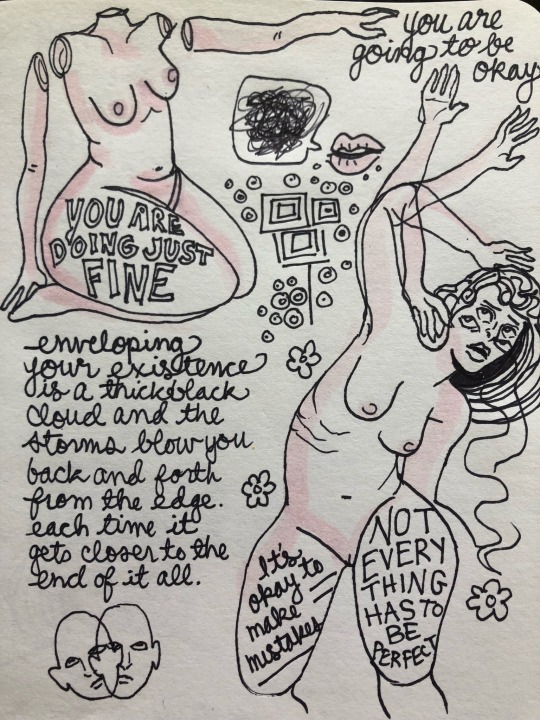 you are
going to be
okay
YOU ARE
DOING JUST
FINE
enveloping
your existence
is a thick black
cloud and the
storms blow you
back and forth
from the edge.
each time it
gets closer to the
end of it all.
It's
okay to
make
mistakes
NOT
EVERY
THING
HAS TO
BE
PERFECT